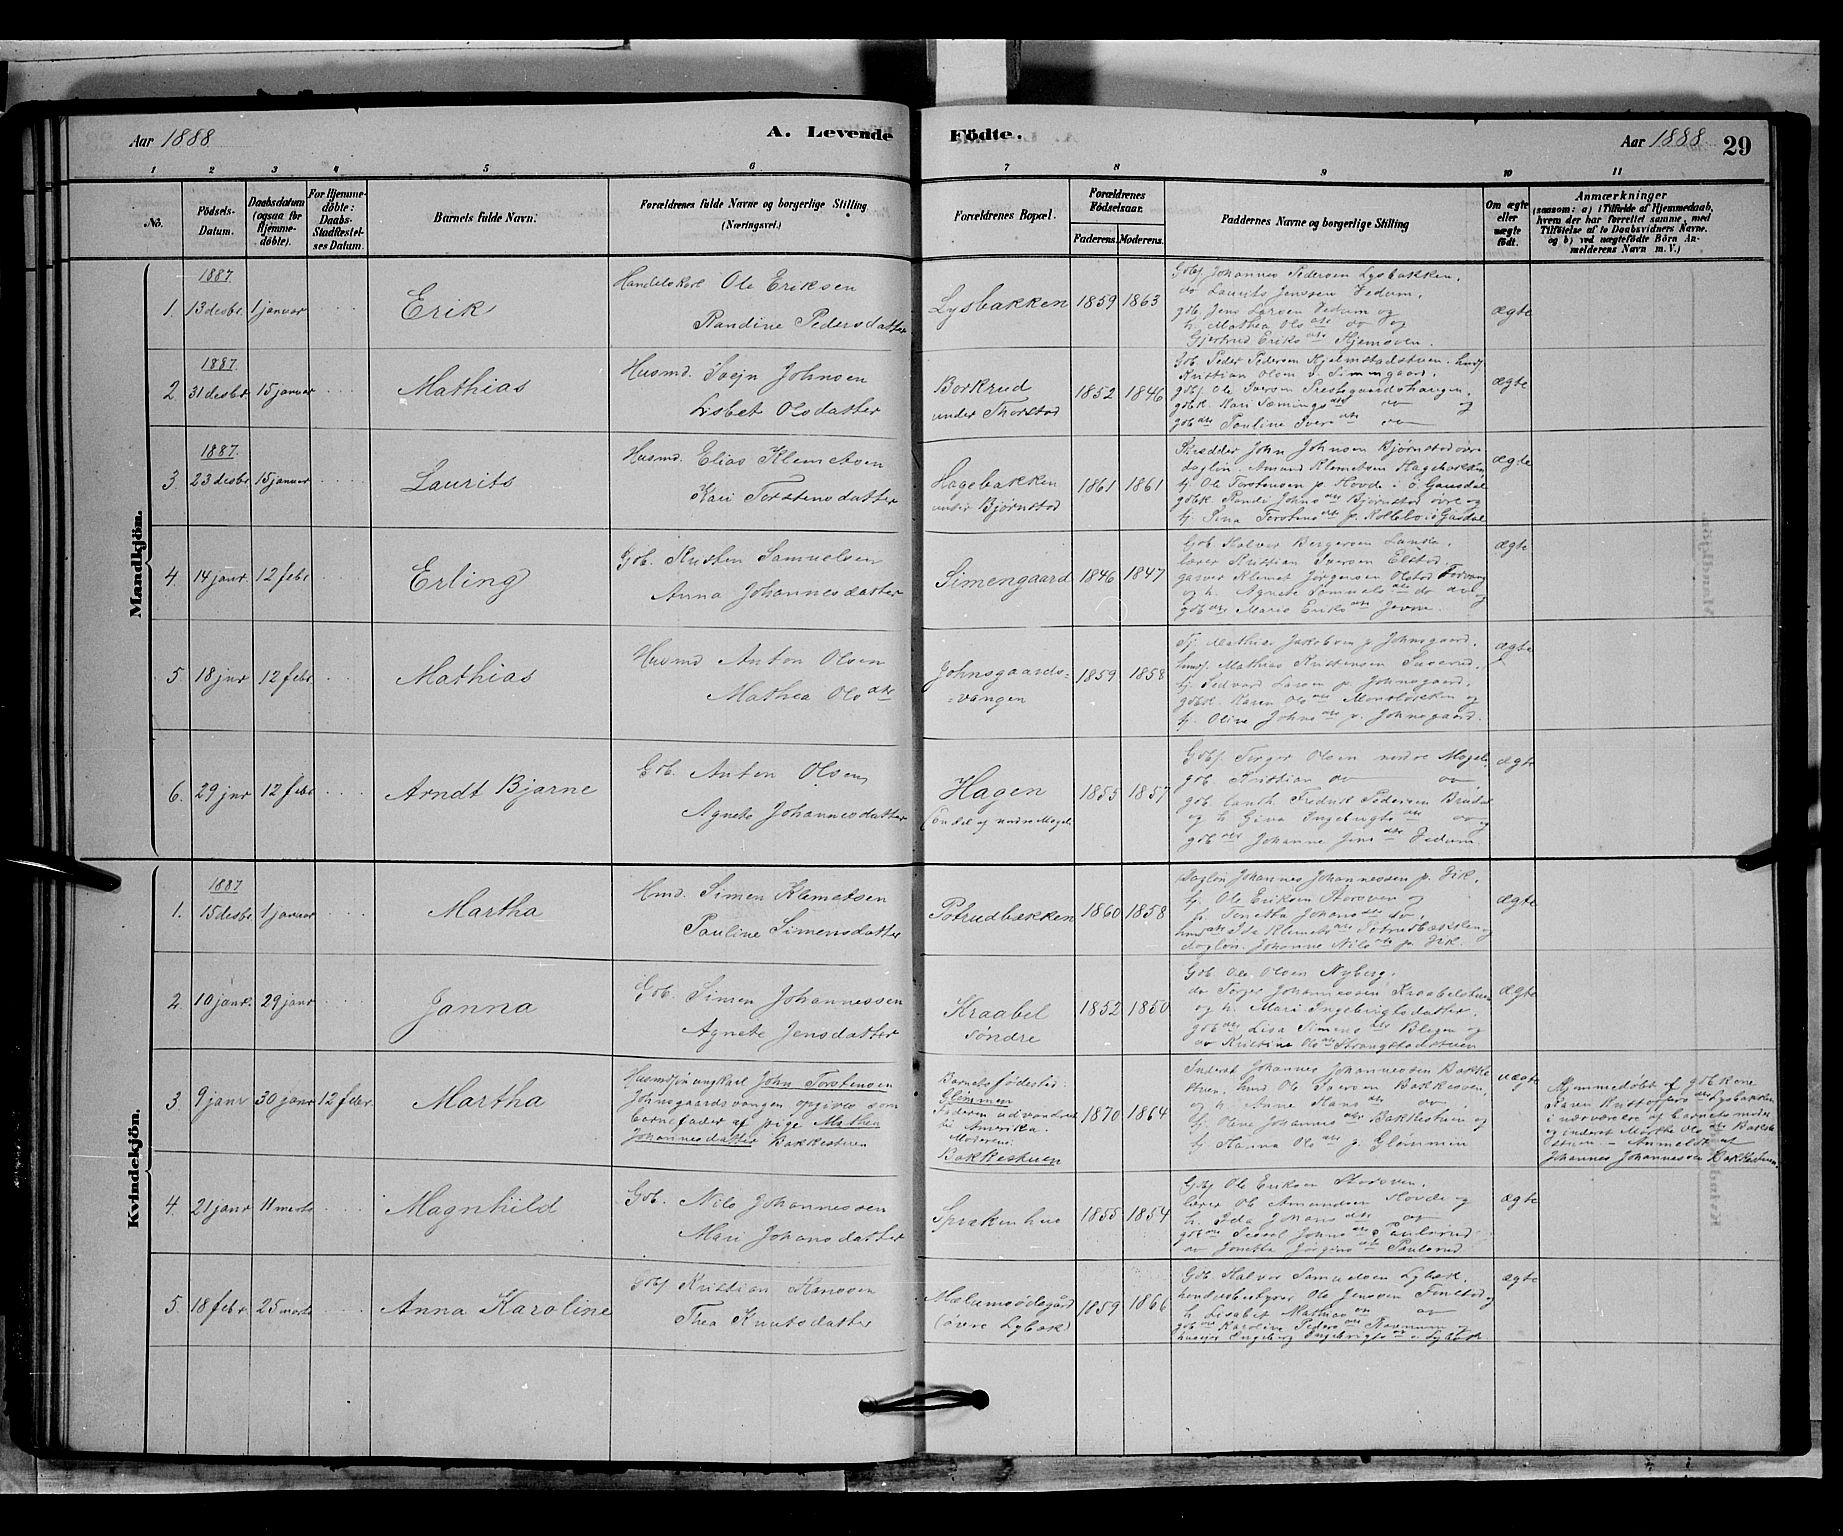 Aar 1888
A. Levende Fødte.
Aar 1888 29
1 2 3 4 5 6 7 8 9 10 11
No.
Födsels-Datum.
Daabsdatum (ogsaa for Hjemme-döbte).
For Hjemme-döbte: Daabs-Stadfæstel-ses Datum.
Barnets fulde Navn.
Forældrenes fulde Navne og borgerlige Stilling (Næringsvei.)
Forældrenes Bopæl.
Forældrenes Födselsaar.
Faderens. Moderens.
Faddernes Navne og borgerlige Stilling
Om ægte eller uægte födt.
Anmærkninger
(saasom: a) i Tilfælde af Hjemmedaab, hvem der har forrettet samme, med Tilföielse af to Daabsvidners Navne, og b) ved uægtefödte Börn An-melderens Navn m. V.)
Mandkjön.
1887
1. 13 desbr. 1 januar Erik
Handelskarl Ole Eriksen
Randine Pedersdatter
Lysbakken 1859 1863
Gbf. Johannes Pedersen Lysbakken.
do Laurits Jenssen Vedum.
gbf. Jens Larsen Vedum og
h. Mathea Ols dtr do og
Gjertrud Eriks dtr Hjemsveen.
ægte
1887
2. 31 desbr 15 januar Mathias
Husmd. Svejn Johnsen
Lisbet Olsdatter
Borkrud
under Thorstad
1852 1846
Gbr. Peder Pedersen Hjelmstadstuen. husf
Kristian Olsen v. Simengaard.
gbf. Ole Iversen Prestegaardshaugen.
gbk. Kari Sæmings dtr do og
gbr dtr Pauline Ivers dtr do
ægte
1887.
3. 23 desbr 15 januar Laurits
Husmd. Elias Klemetsen
Kari Torstensdatter
Hagebakken
under Bjørnstad
1861 1861
Skredder John Johnsen Bjørnstad øvre
dagløn. Amund Klemetsen Hagebakken
tj. Ole Torstensen p. Hovde i ø. Gausdal
gbk. Randi Johns dtr Bjørnstad øvre og
tj. Sina Torstens dtr p.
ægte
4. 14 janr. 12 febr Erling
Gbr. Kristen Samuelsen
Anna Johannesdatter
Simengaard 1846 1847
Gbr. Halvor Bergersen Landa.
lærer Kristian Iversen Elstad.
garver Klemet Jørgensen Olstad
og h. Agnete Samuels dtr do og
gbr dtr Marie Eriks dtr Jevne.
ægte
5. 18 jnr 12 febr. Mathias
Husmd Anton Olsen
Mathea Ols dtr
Johnsgaards-
=vangen
1859 1858
Tj. Mathias Jakobsen p. Johnsgaard.
husf. Mathias Kristensen
tj. Sedvard Larsen p. Johnsgaard.
gbk. Karen Ols dtr og
tj. Oline Johns dtr p. Johnsgaard.
ægte
6. 29 jnr 12 febr Arndt Bjarne
Gbr. Anton Olsen
Agnete Johannesdatter
Hagen
(en del af nedre Mageli
1855 1857
Gbf. Torger Olsen nedre Mageli,
gbr. Kristian do do
gbr. Fredrik Pedersen
og h. Gina Ingebrigts dtr do og
gbr dtr Johanne Jens dtr Vedum
ægte
Kvindekjön.
1887
1. 15 desbr 1 januar Martha
Hmd. Simen Klemetsen
Pauline Simensdatter
Potrudbakken 1860 1858
Dagløn Johannes Johannessen p.
tj. Ole Eriksen Storsveen og
pi. Tonetta Johans dtr do.
hmd dtr Ida Klemets dtr og
dagløn. Johanne Nils dtr p.
ægte
2. 10 janr. 29 janr Janna
Gbr. Simen Johannessen
Agnete Jensdatter
Kraabel
søndre
1852 1850
Gbr. Ole Olsen Nyberg.
do Torger Johannessen Kraabelstuen
og h. Mari Ingebrigtsdatter.
gbr dtr Lisa Simens dtr og
do Kristine Ols dtr
ægte
3. 9 janr 30 janr 12 febr. Martha
Husmdsøn ungkarl John Torstensen
Johnsgaardsvangen opgives som
barnefader af pige Mathea
Johannesdatter Bakkestuen
Barnets fødested:
Glemmen
Faderen udvandret
til Amerika.
Moderens:
Bakkestuen
1870 1864
Inderst Johannes Johannessen Bakke-
stuen, husmd Ole Iversen Bakkesveen,
og h. Anne Hans dtr do,
tj. Oline Johannes dtr Bakkestuen og
tj. Hanna Ols dtr p. Glemmen
uægte
Hjemmedøbt af gbrkone
Karen Kristoffers dtr Lysbakken
i nærværelse af barnets moder
og inderst Marthe Ols dtr Bakke-
stuen. – Anmeldt af
Johannes Johannessen Bakkestuen.
4. 21 janr 11 marts Magnhild
Gbr. Nils Johannessen
Mari Johansdatter
Sprakenhus 1855 1854
Gbf. Ole Eriksen Storsveen.
lærer Ole Amundsen Hovde og
h. Ida Johans dtr do
gbr dtr Sissel Johns dtr Paulsrud
do Jonetta Jørgins dtr Paulsrud.
ægte
5. 18 febr. 25 marts Anna Karoline
Gbf. Kristian Hansen
Thea Knutsdatter
Mælumsødegård
(øvre Lybæk)
1859 1866
Gbr. Halvor Samuelsen Lybæk.
handelsbestyrer Ole Jenssen og
h. Lisabet Mathias dtr do
gbr dtr Karoline Peders dtr og
Ingeborg Ingebrigts dtr ø. Lybæk
ægte